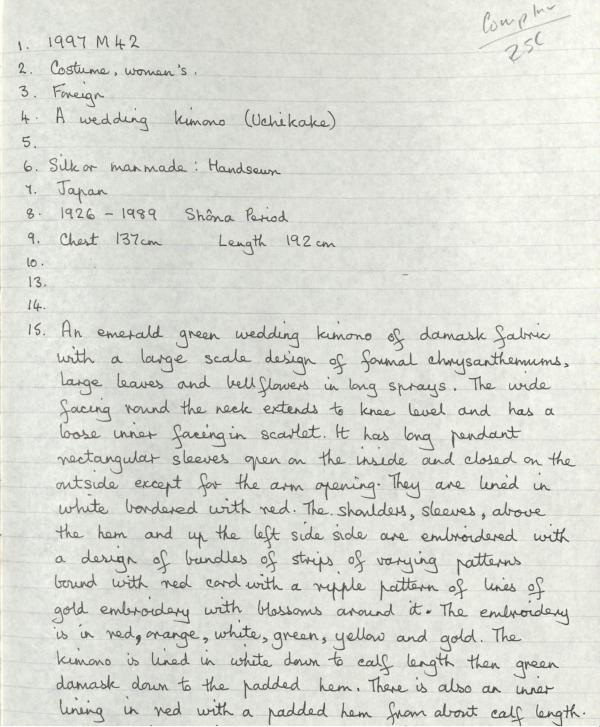 Comp
25C
1. 1997 M 42
2. Costume, women's.
3. Foreign
4. A wedding kimono (Uchikake)
5.
6. Silk or manmade : Handsewn
7. Japan
8. 1926 - 1989 Shôna Period
9. Chest 137cm Length 192 cm
10.
13.
14.
15. An emerald green wedding kimono of damask fabric
with a large scale design of formal chrysanthemums,
large leaves and bellflowers in long sprays. The wide
facing round the neck extends to knee level and has a
loose inner facing in scarlet. It has long pendant
rectangular sleeves open on the inside and closed on the
outside except for the arm opening. They are lined in
white bordered with red. The shoulders, sleeves, above
the hem and up the left side side are embroidered with
a design of bundles of strips of varying patterns
bound with red cord with a ripple pattern of lines of
gold embroidery with blossoms around it. The embroidery
is in red, orange, white, green, yellow and gold. The
kimono is lined in white down to calf length then green
damask down to the padded hem. There is also an inner
lining in red with a padded hem from about calf length.